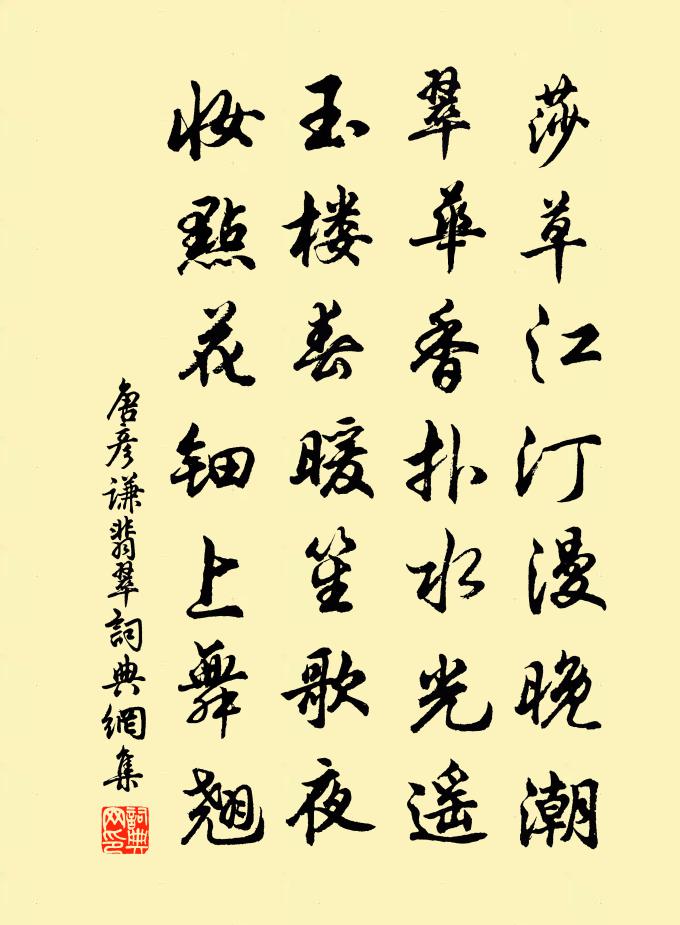 莎草江汀漫晚潮
翠華香扑水光遥
玉楼春暖笙歌夜
妆點花钿上舞翹
唐彦谦翡翠詞典網集
詞典网印